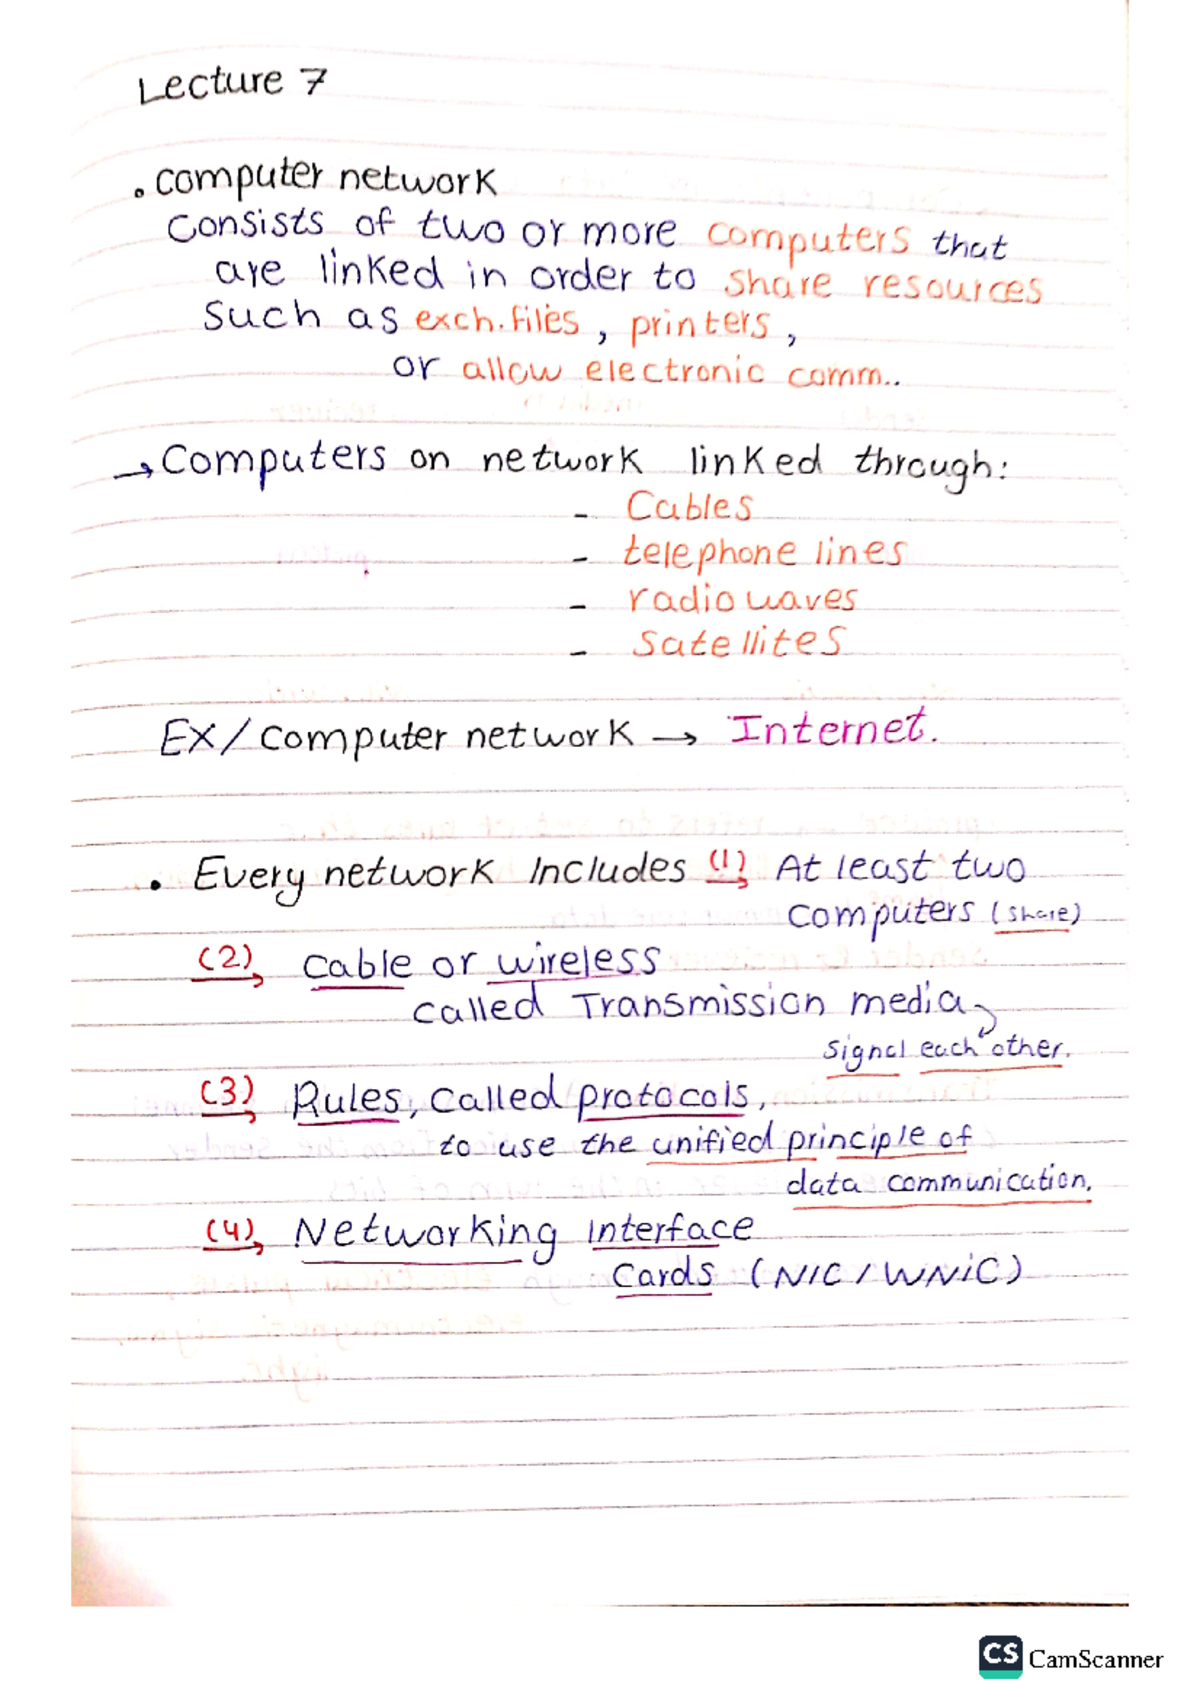 Lecture 7
. computer network
consists of two or more computers that
are linked in order to share resources
such as exch. files , printers ,
or allow electronic comm..
→ Computers on network linked through:
- Cables
- telephone lines
- radio waves
- Satellites
EX/ computer network → Internet.
. Every network Includes (1) At least two
computers (share)
(2) cable or wireless
called Transmission media
signal each other.
(3) Rules, called protocols,
to use the unified principle of
data communication.
(4) Networking interface
cards (NIC / WNIC)
CS CamScanner